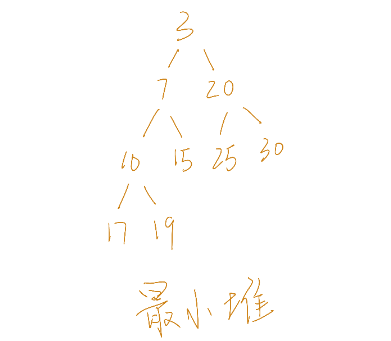 3
7 20
10 15 25 30
17 19
最小堆